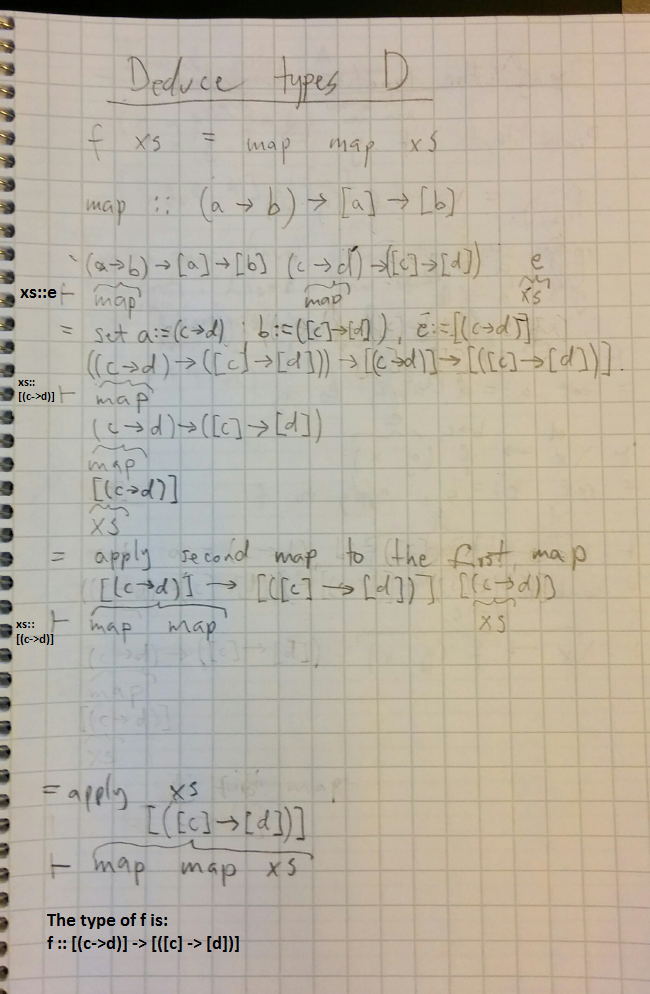 Deduce types D
f xs = map map xs
map :: (a → b) → [a] → [b]
(a→b)→[a]→[b] (c→d)→([c]→[d]) e
xs::e ⊢ map map xs
= set a:=(c→d), b:=([c]→[d]), e:=[(c→d)]
((c→d)→([c]→[d]))→[(c→d)]→[([c]→[d])].
xs::
[(c->d)] ⊢ map
(c→d)→([c]→[d])
map
[(c→d)]
xs
= apply second map to the first map
[(c→d)] → [([c]→[d])] [(c→d)]
xs::
[(c->d)] ⊢ map map xs
= apply xs
[([c]→[d])]
⊢ map map xs
The type of f is:
f :: [(c->d)] -> [([c] -> [d])]